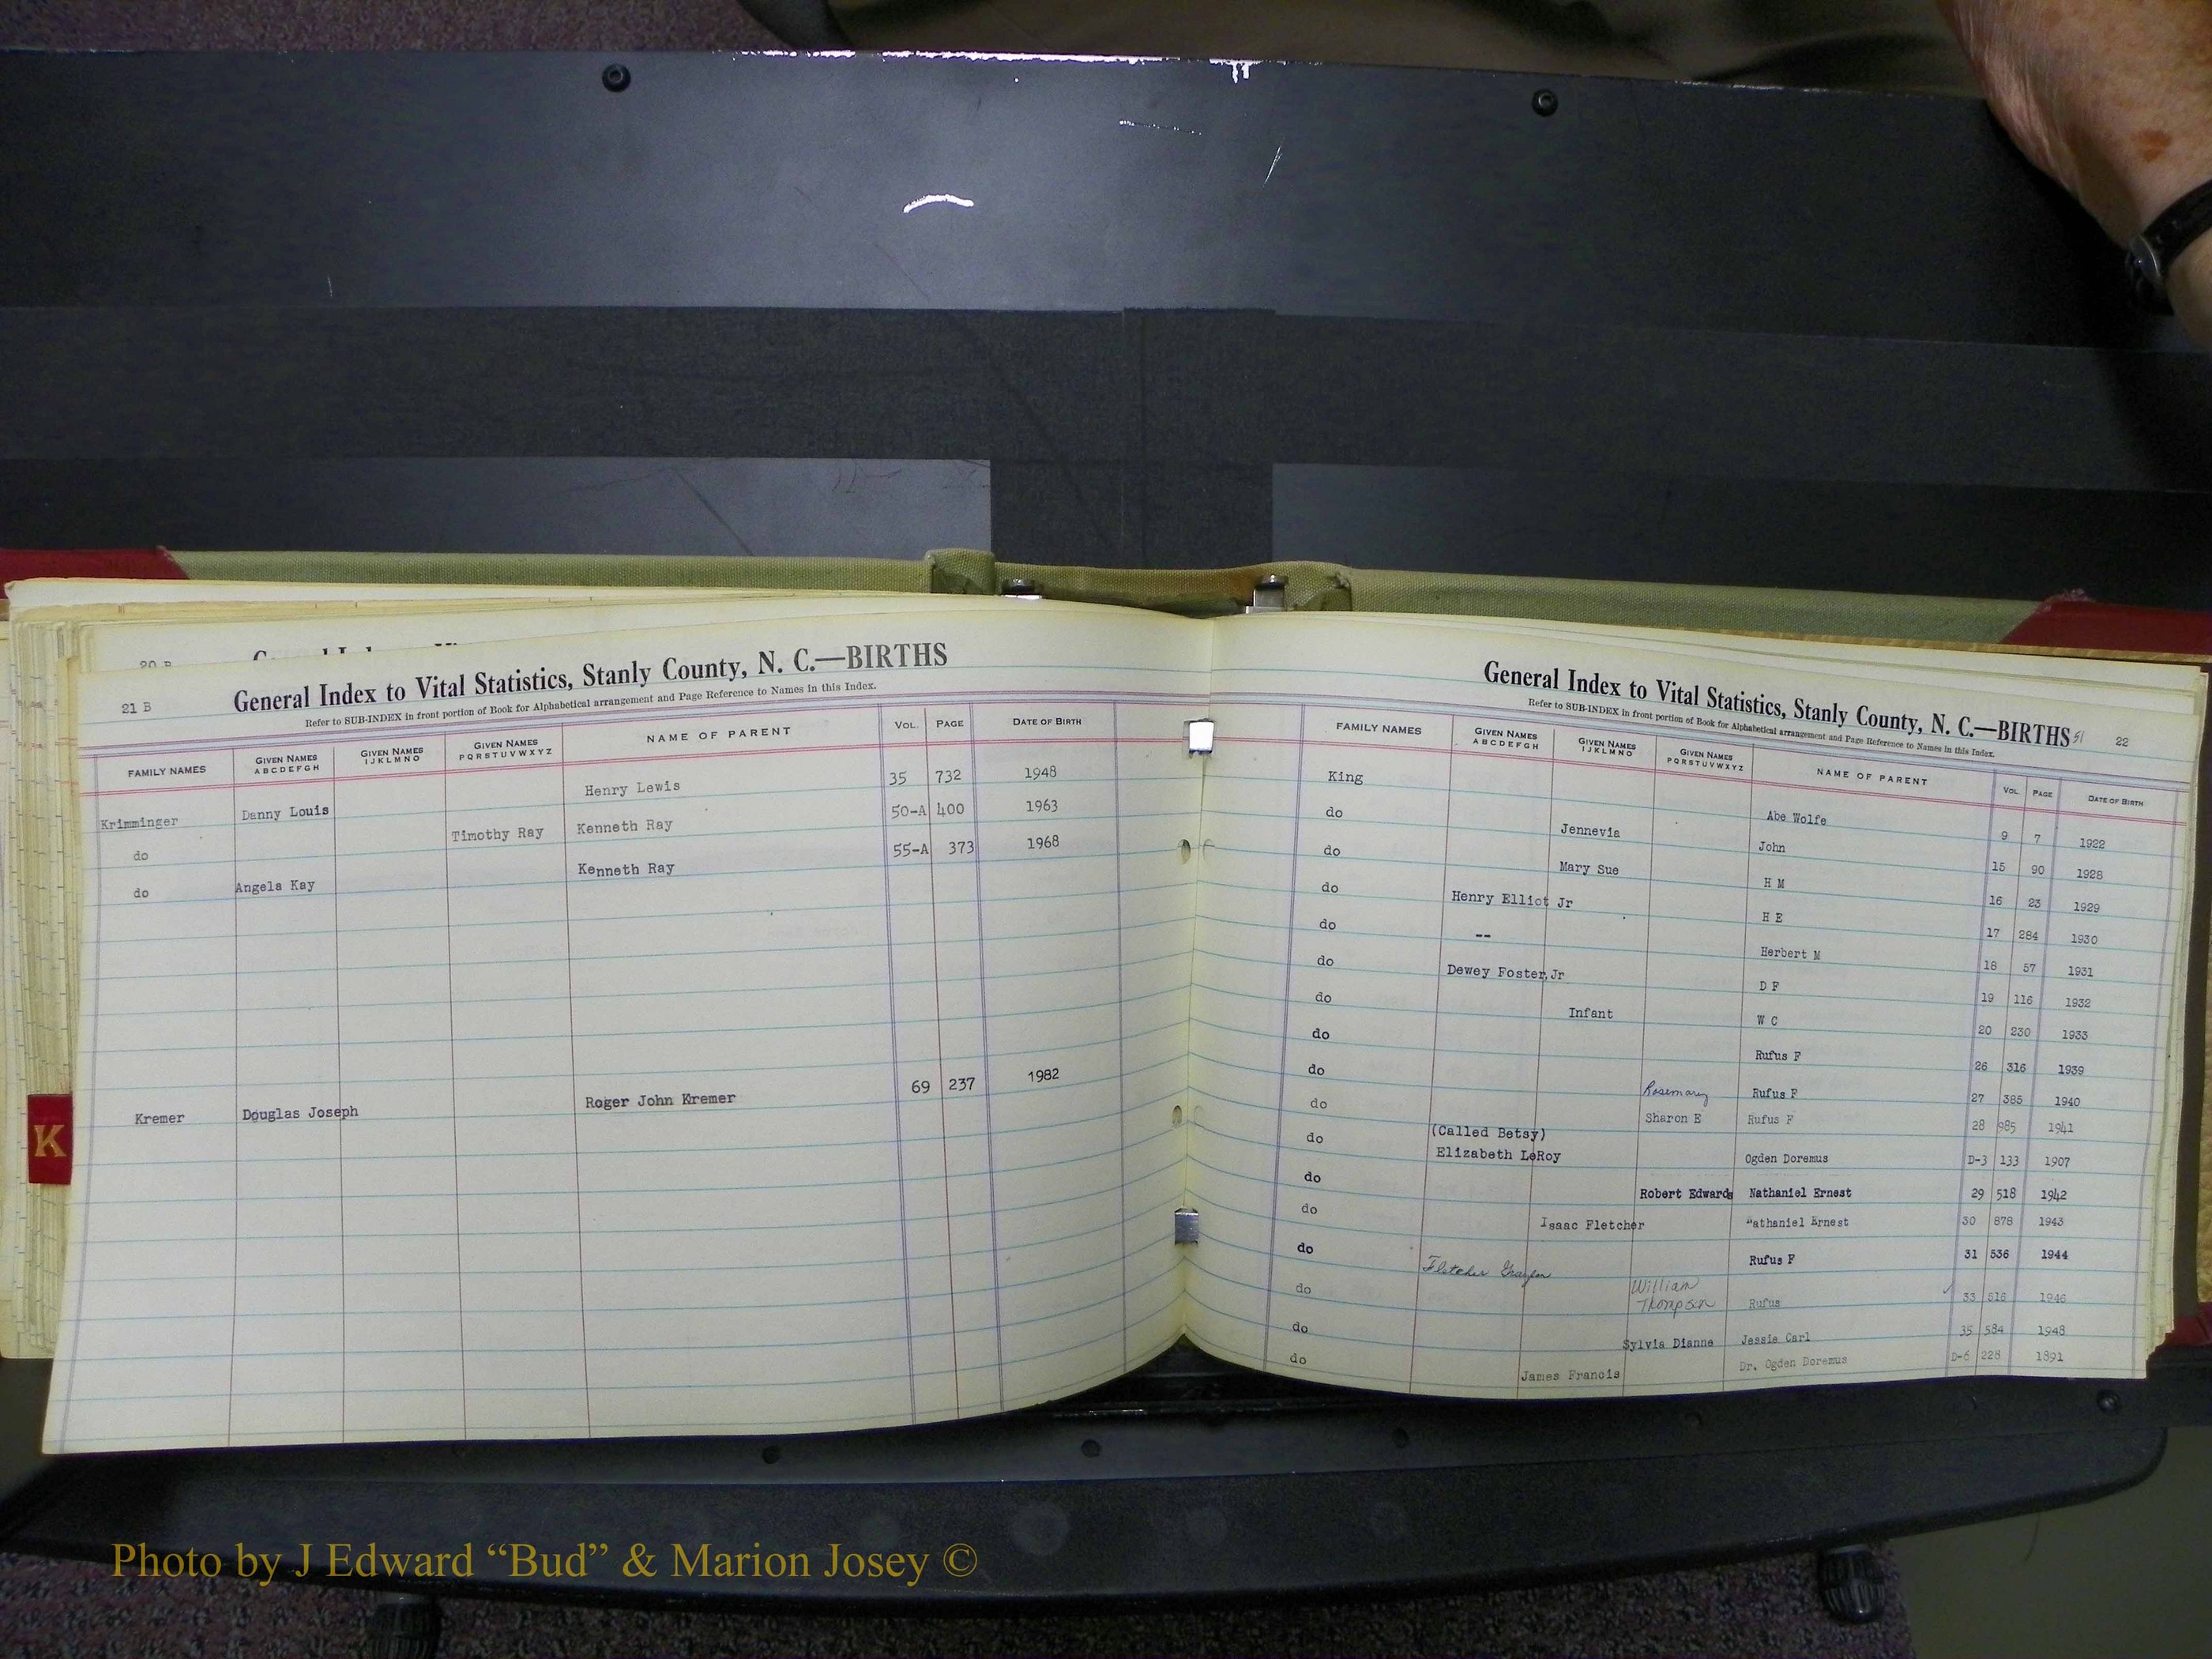 20 B
21 B
General Index to Vital Statistics, Stanly County, N. C.—BIRTHS
Refer to SUB-INDEX in front portion of Book for Alphabetical arrangement and Page Reference to Names in this Index.
FAMILY NAMES GIVEN NAMES ABCDEFGH GIVEN NAMES IJKLMNO GIVEN NAMES PQRSTUVWXYZ NAME OF PARENT VOL. PAGE DATE OF BIRTH
Krimminger Danny Louis Henry Lewis 35 732 1948
do Timothy Ray Kenneth Ray 50-A 400 1963
do Angela Kay Kenneth Ray 55-A 373 1968
Kremer Douglas Joseph Roger John Kremer 69 237 1982
K
General Index to Vital Statistics, Stanly County, N. C.—BIRTHS 51 22
Refer to SUB-INDEX in front portion of Book for Alphabetical arrangement and Page Reference to Names in this Index.
FAMILY NAMES GIVEN NAMES ABCDEFGH GIVEN NAMES IJKLMNO GIVEN NAMES PQRSTUVWXYZ NAME OF PARENT VOL. PAGE DATE OF BIRTH
King Abe Wolfe 9 7 1922
do Jennevia John 15 90 1928
do Mary Sue H M 16 23 1929
do Henry Elliot Jr H E 17 284 1930
do -- Herbert M 18 57 1931
do Dewey Foster,Jr D F 19 116 1932
do Infant W C 20 230 1933
do Rufus F 26 316 1939
do Rosemary Rufus F 27 385 1940
do Sharon E Rufus F 28 985 1941
(Called Betsy)
do Elizabeth LeRoy Ogden Doremus D-3 133 1907
do Robert Edwards Nathaniel Ernest 29 518 1942
do Isaac Fletcher Nathaniel Ernest 30 878 1943
do Fletcher Rufus F 31 536 1944
do William Thompson Rufus 33 516 1946
do Sylvia Dianne Jessie Carl 35 584 1948
do James Francis Dr. Ogden Doremus D-6 228 1891
Photo by J Edward “Bud” & Marion Josey ©